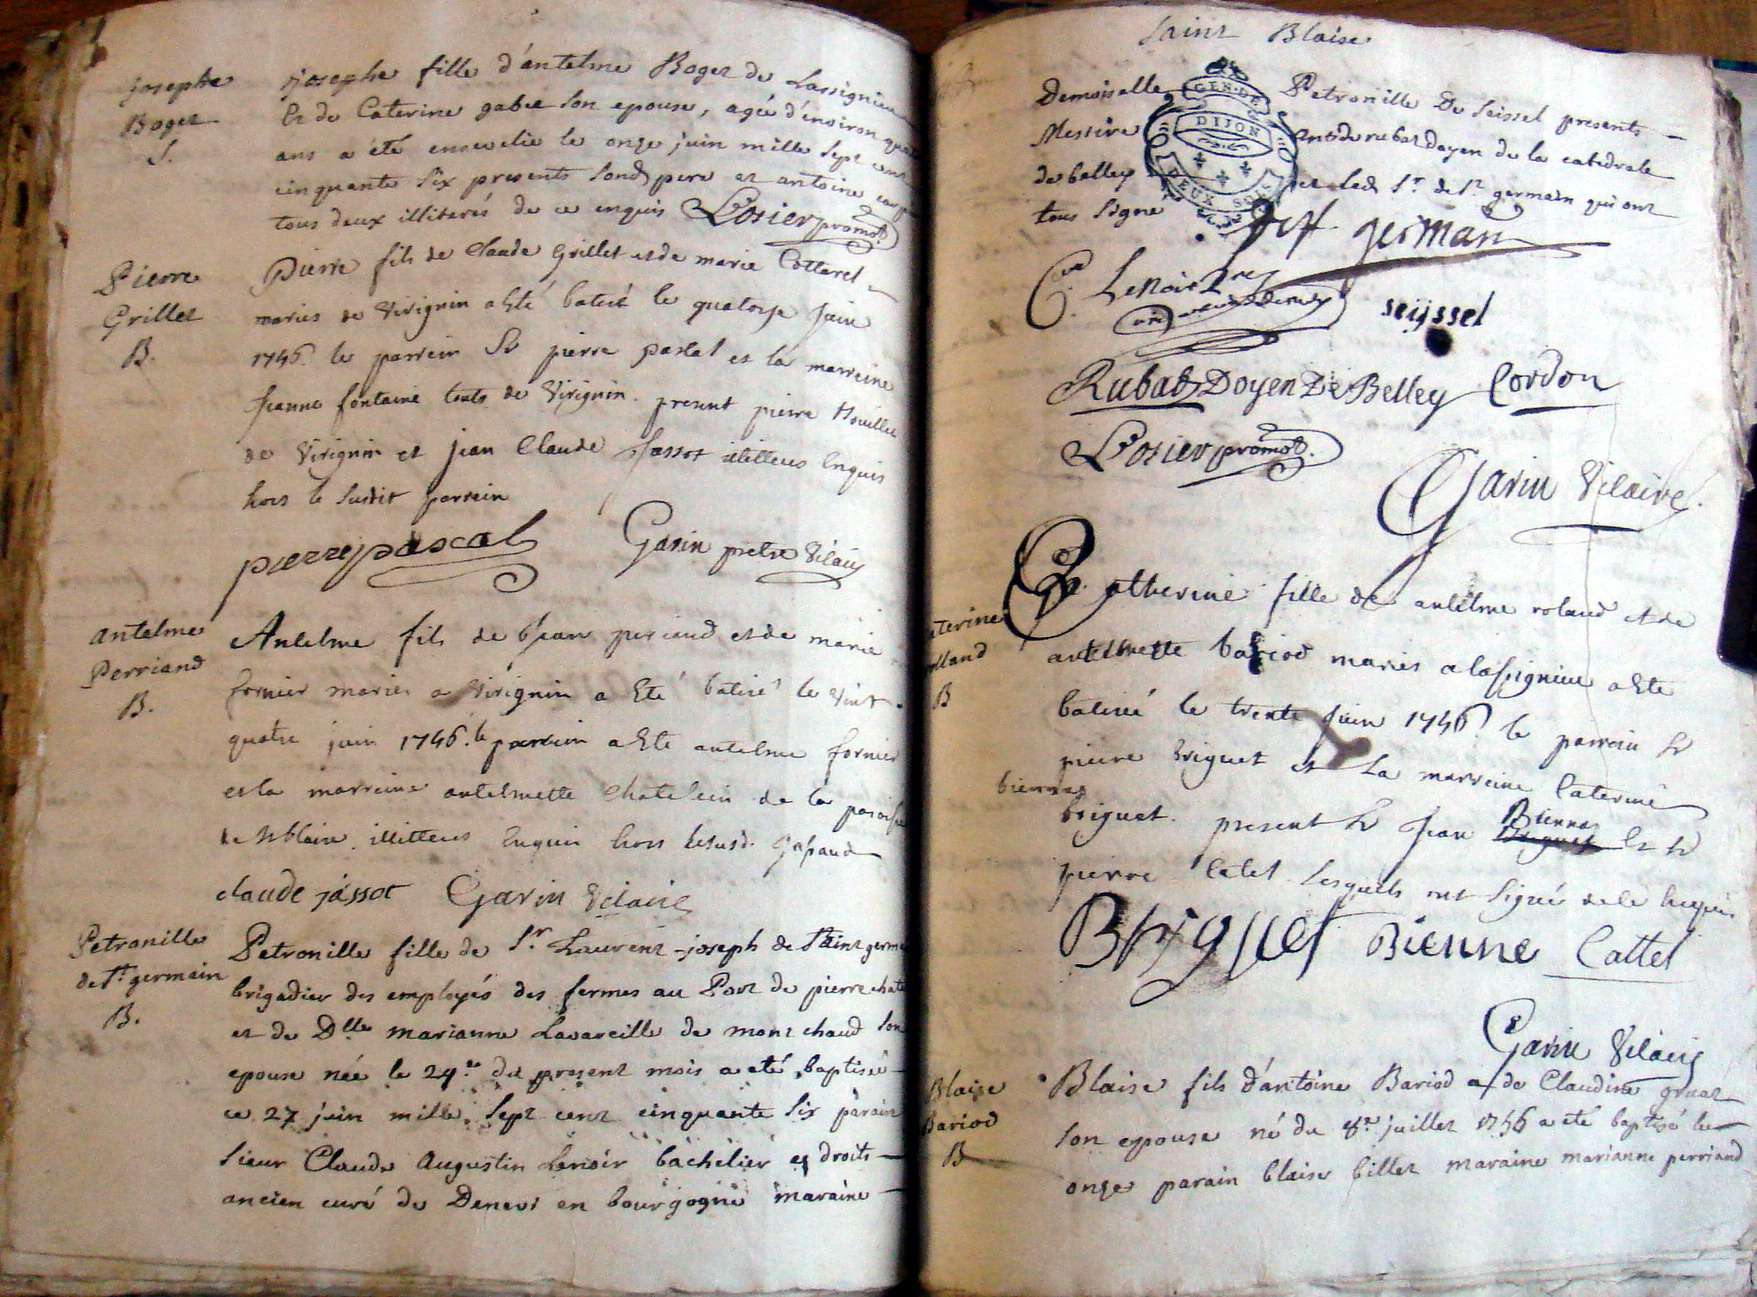 josephe
Boget
S.
josephe fille d'antelme Boget de Lassignieu
et de Caterine gabet son epouse, agée d'environ
ans a été ensevelie le onze juin mille sept cent
cinquante six presents sond pere et antoine
tous deux illiterés de ce enquis Losier promot.
Pierre
Grillet
B.
Pierre fils de Claude Grillet et de marie Cottarel
mariés de Virignin a Eté batisé le quatorze juin
1756. le parrein Sr pierre pascal et la marreine
jeanne fontaine touts de Virignin. present pierre
de Virignin et jean Claude jassot illitteres Enquis
hors le susdit parrein
pierre pascal Garin pretre Vicaire
antelme
Perriand
B.
Antelme fils de jean periand et de marie
fornier mariés a Virignin a Eté batisé le vint
quatre juin 1756. le parrein a Eté antelme fornier
et la marreine antelmette Chatelein de la paroisse
de St blaise. illitteres Enquis hors
claude jassot Garin Vicaire
Petronille
de St germain
B.
Petronille fille de Sr Laurent-joseph de Saint germa
brigadier des employés des fermes au Port de pierre chate
et de Dlle marianne Lavareille de mont chaud son
epouse née le 24e du present mois a eté baptisée
ce 27 juin mille sept cent cinquante six parain
sieur Claude augustin Lenoir bachelier es droits
ancien curé de Denevi en bourgogne maraine
Saint Blaise
Demoiselle Petronille De Seissel presents
Messire de rubat doyen de la catedrale
de belley et led. Sr de St germain qui ont
tous signé
GEN. DE
DIJON
DEUX SOLS
St germain
C. Lenoir
seijssel
Rubat Doyen De Belley Cordon
Losier promot.
Garin Vicaire.
aterine
olland
B
Catherine fille de antelme roland et de
antelmette bariod mariés a lassignieu a Eté
batisée le trente juin 1756. le parrein Sr
pierre briguet et la marreine Caterine
biennas
briguet. present Sr jean Biennas et Sr
pierre Catel lesquels ont signé de ce Enquis
Briguet Bienne Cattel
Garin Vicaire
Blaise
Bariod
B
Blaise fils d'antoine Bariod et de Claudine gruat
son epouse né du 8e juillet 1756 a eté baptisé le
onze parain blaise billet maraine marianne perriand